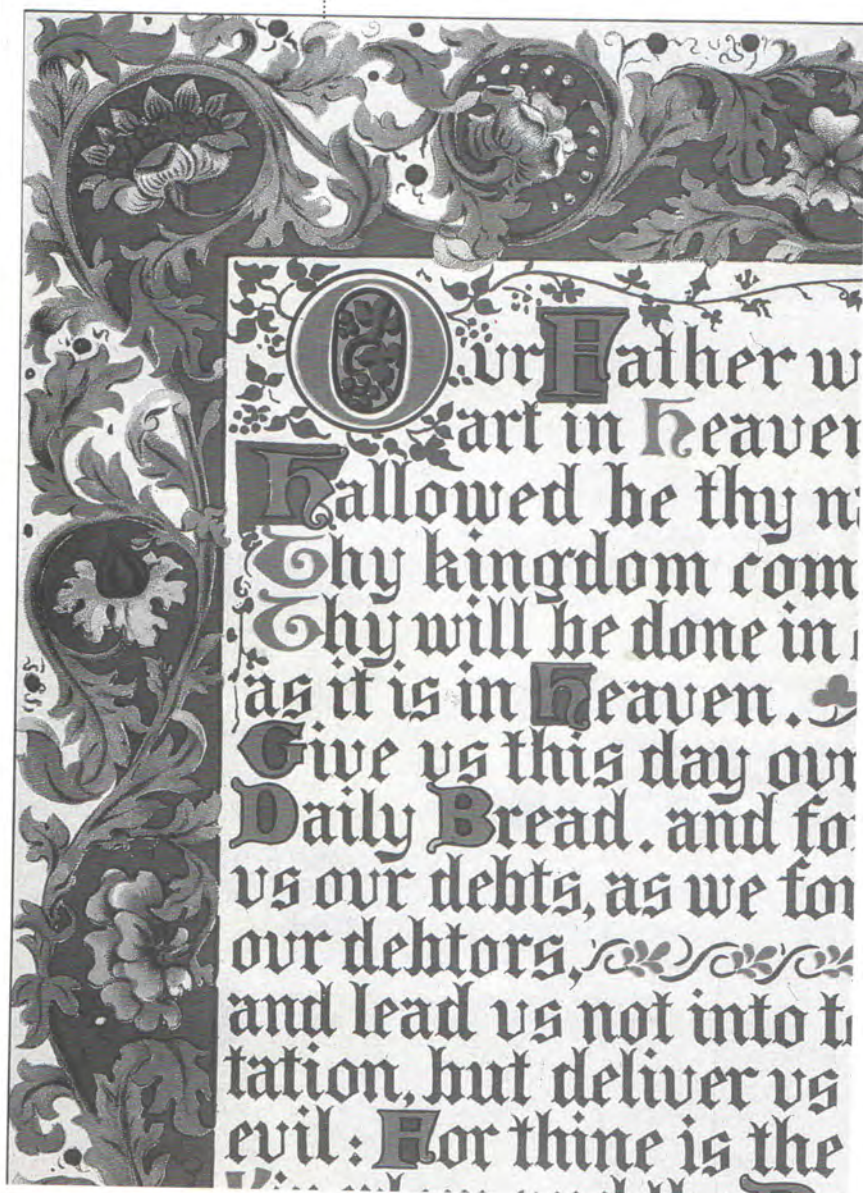 Ovr Father
art in
Hallowed be thy
Thy kingdom
Thy will be done in
as it is in Heaven.
Give vs this day ovr
Daily Bread. and
vs ovr debts, as we
ovr debtors,
and lead vs not into
tation, but deliver vs
evil: For thine is the